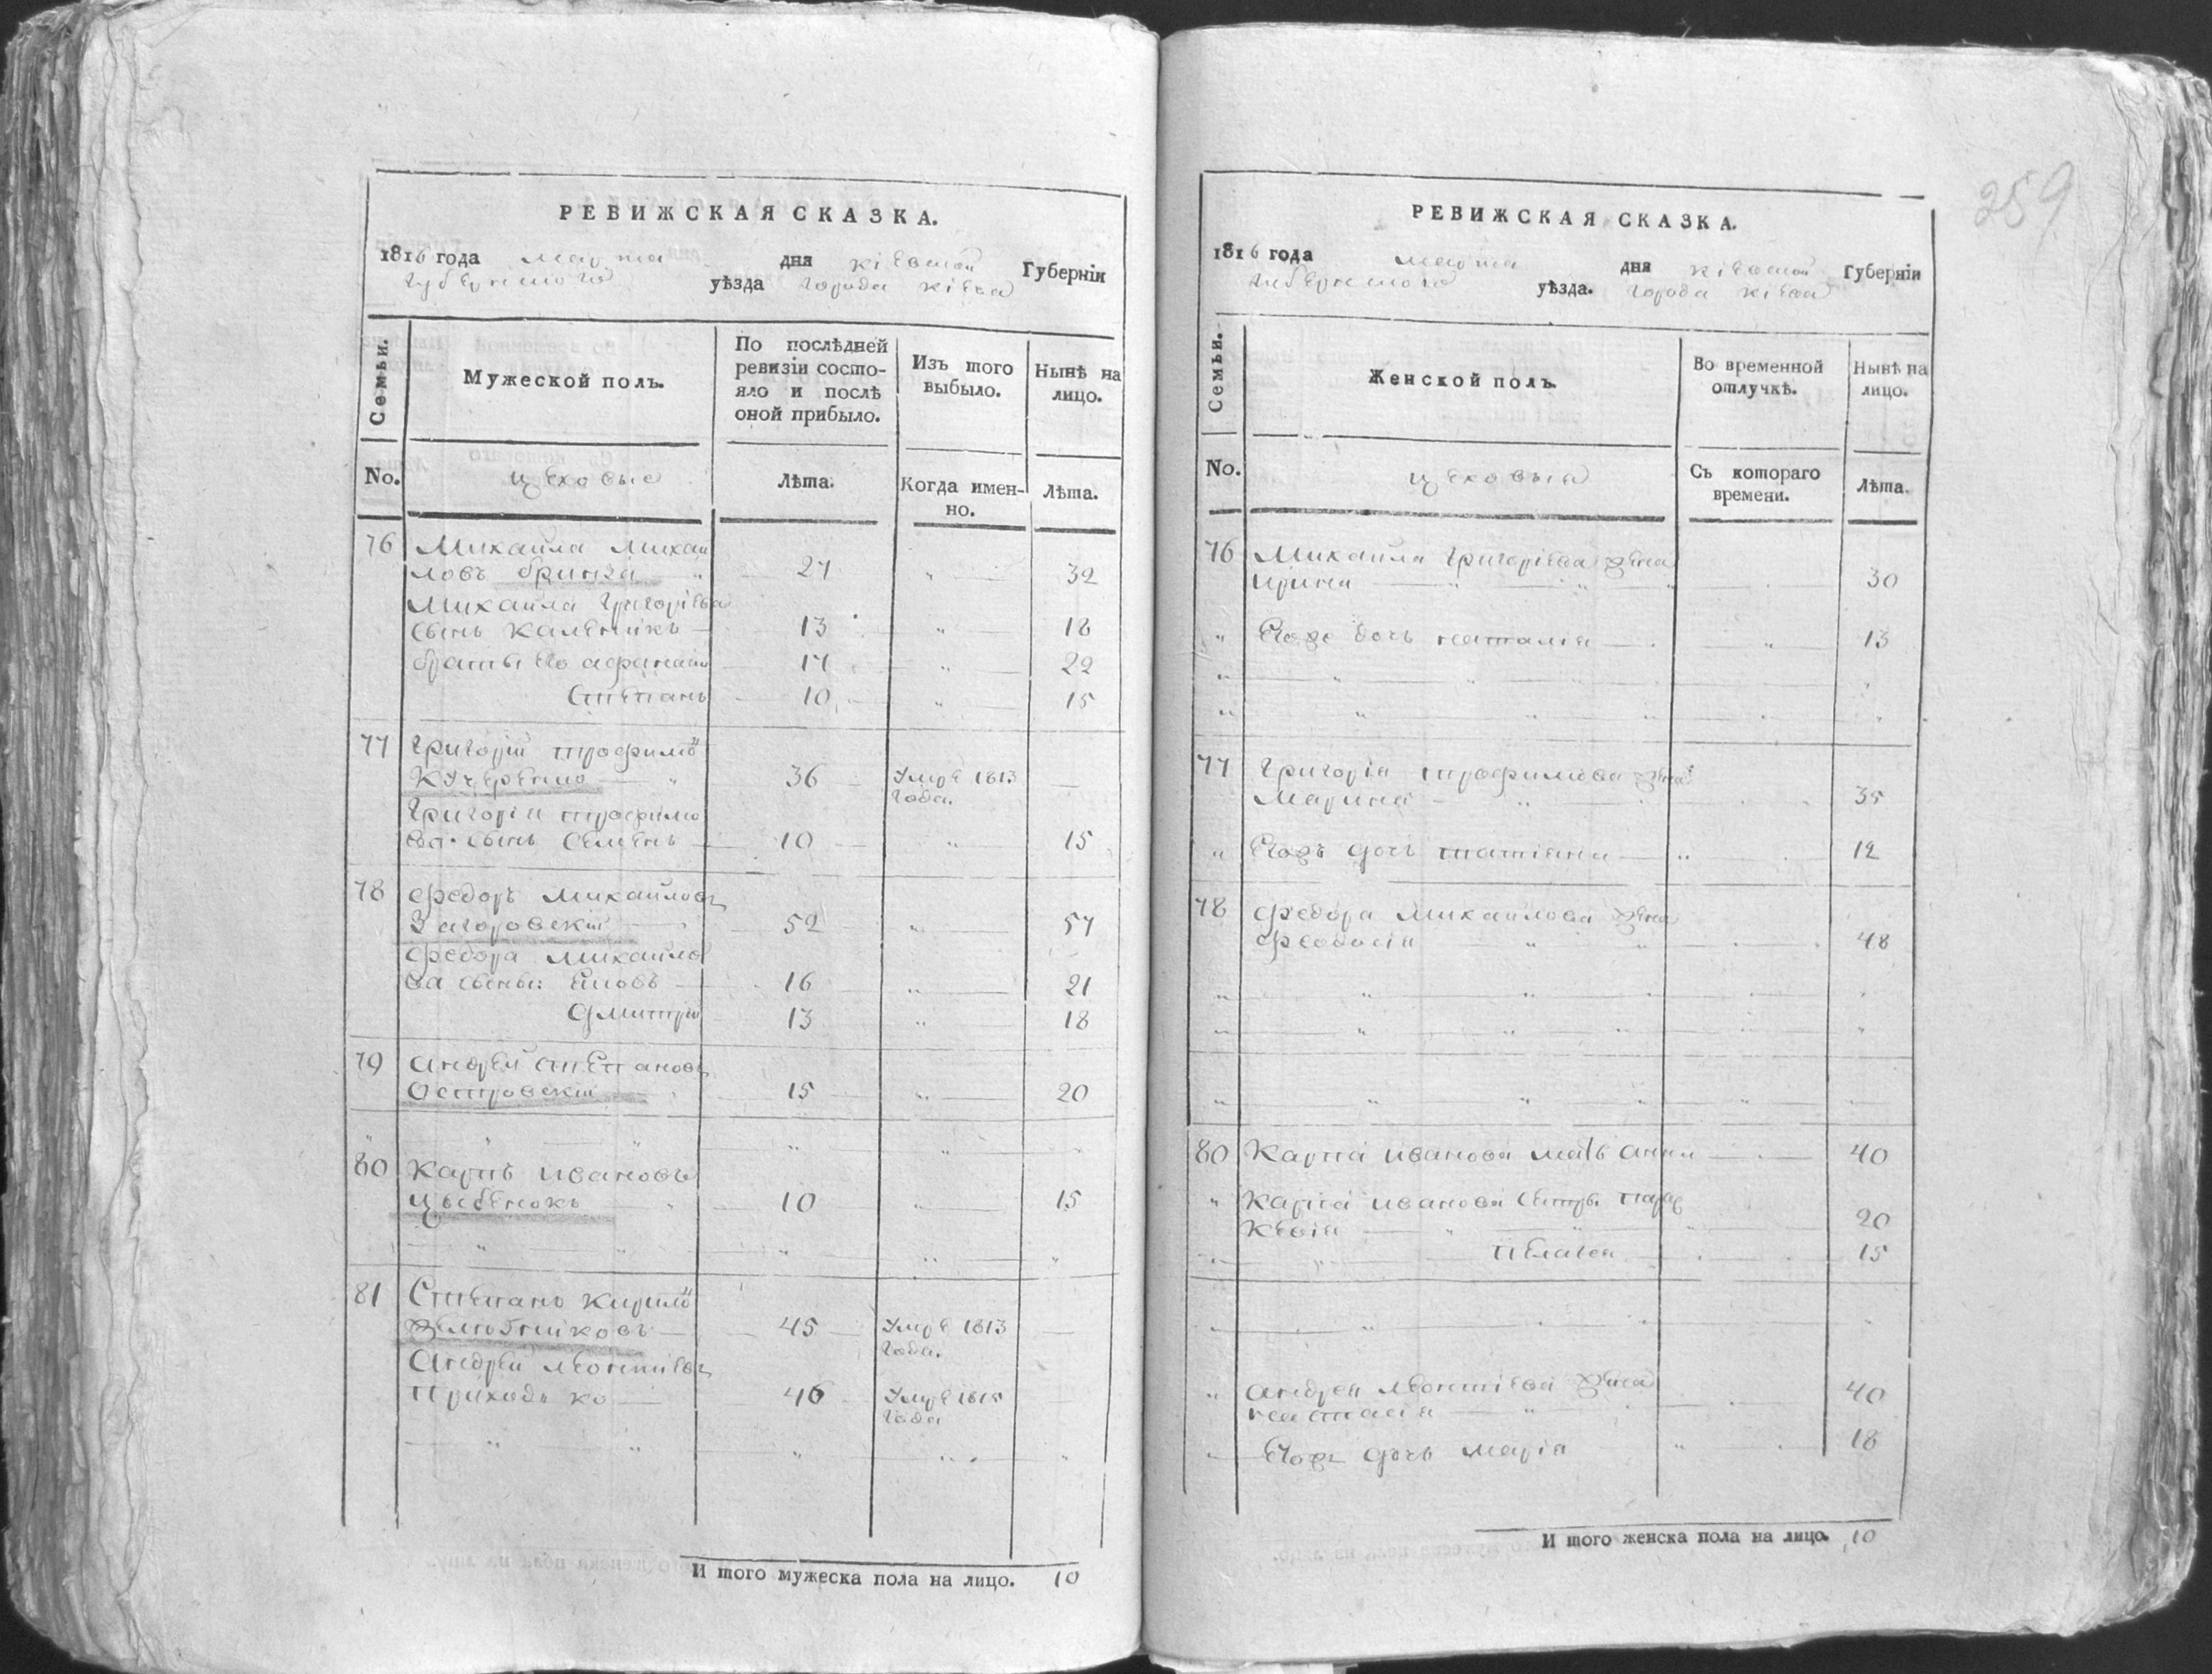 РЕВИЖСКАЯ СКАЗКА.
1816 года марта дня кіевской Губерніи
губернского уѣзда города кіева
Семьи.
Мужеской полъ.
По послѣдней
ревизіи состо-
яло и послѣ
оной прибыло.
Изъ того
выбыло.
Нынѣ на
лицо.
No. цеховые Лѣта. Когда имен-
но.
Лѣта.
76 Михаила Михаи
ловъ 27 " 32
Михаила григоріева
сынъ 13 " 18
братьи его афанасий 17 " 22
Степанъ 10 " 15
77 григорій трофимо
Кучеренко " 36 Умре 1813 —
года.
григорія трофимо
ва сынъ Семенъ 10 " 15
78 федоръ михаиловъ
Загоровскій 52 " 57
федора михаило
ва сыны: Яковъ 16 " 21
дмитрій 13 " 18
79 андрей степановъ
Островскій 15 " 20
80 карпъ ивановъ
цыбенокъ 10 " 15
81 Степанъ кирило
45 Умре 1813 —
года.
андрей леонтіевъ
приходько 46 Умре 1815 —
года
И того мужеска пола на лицо. 10
259
РЕВИЖСКАЯ СКАЗКА.
1816 года марта дня кіевской Губерніи
губернского уѣзда. города кіева
Семьи.
Женской полъ.
Во временной
отлучкѣ.
Нынѣ на
лицо.
No. цеховыя Съ котораго
времени.
Лѣта.
76 Михаила григоріева жена
ирина 30
" Егожъ дочь наталія " 13
77 григорія трофимова жена
Марина 35
" Егожъ дочь татіяна " 12
78 федора михаилова жена
феодосія 48
80 Карпа иванова мать анна 40
" Карпа иванова сестры пара
кевія 20
пелагея 15
" андрея леонтіева жена 40
настасія
Егожъ дочь марія " 18
И того женска пола на лицо. 10